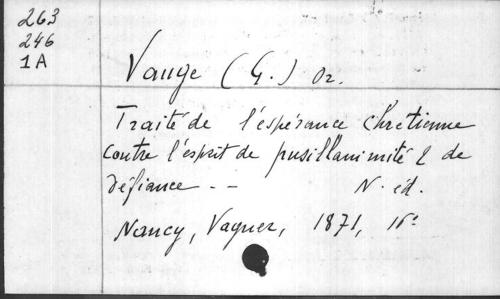 263
246
1A
Vauge (G.) Or.
Traité de l'espérance chretienne
contre l'esprit de pusillanimité & de
défiance - - N. éd.
Nancy, Vagner, 1871, 16°